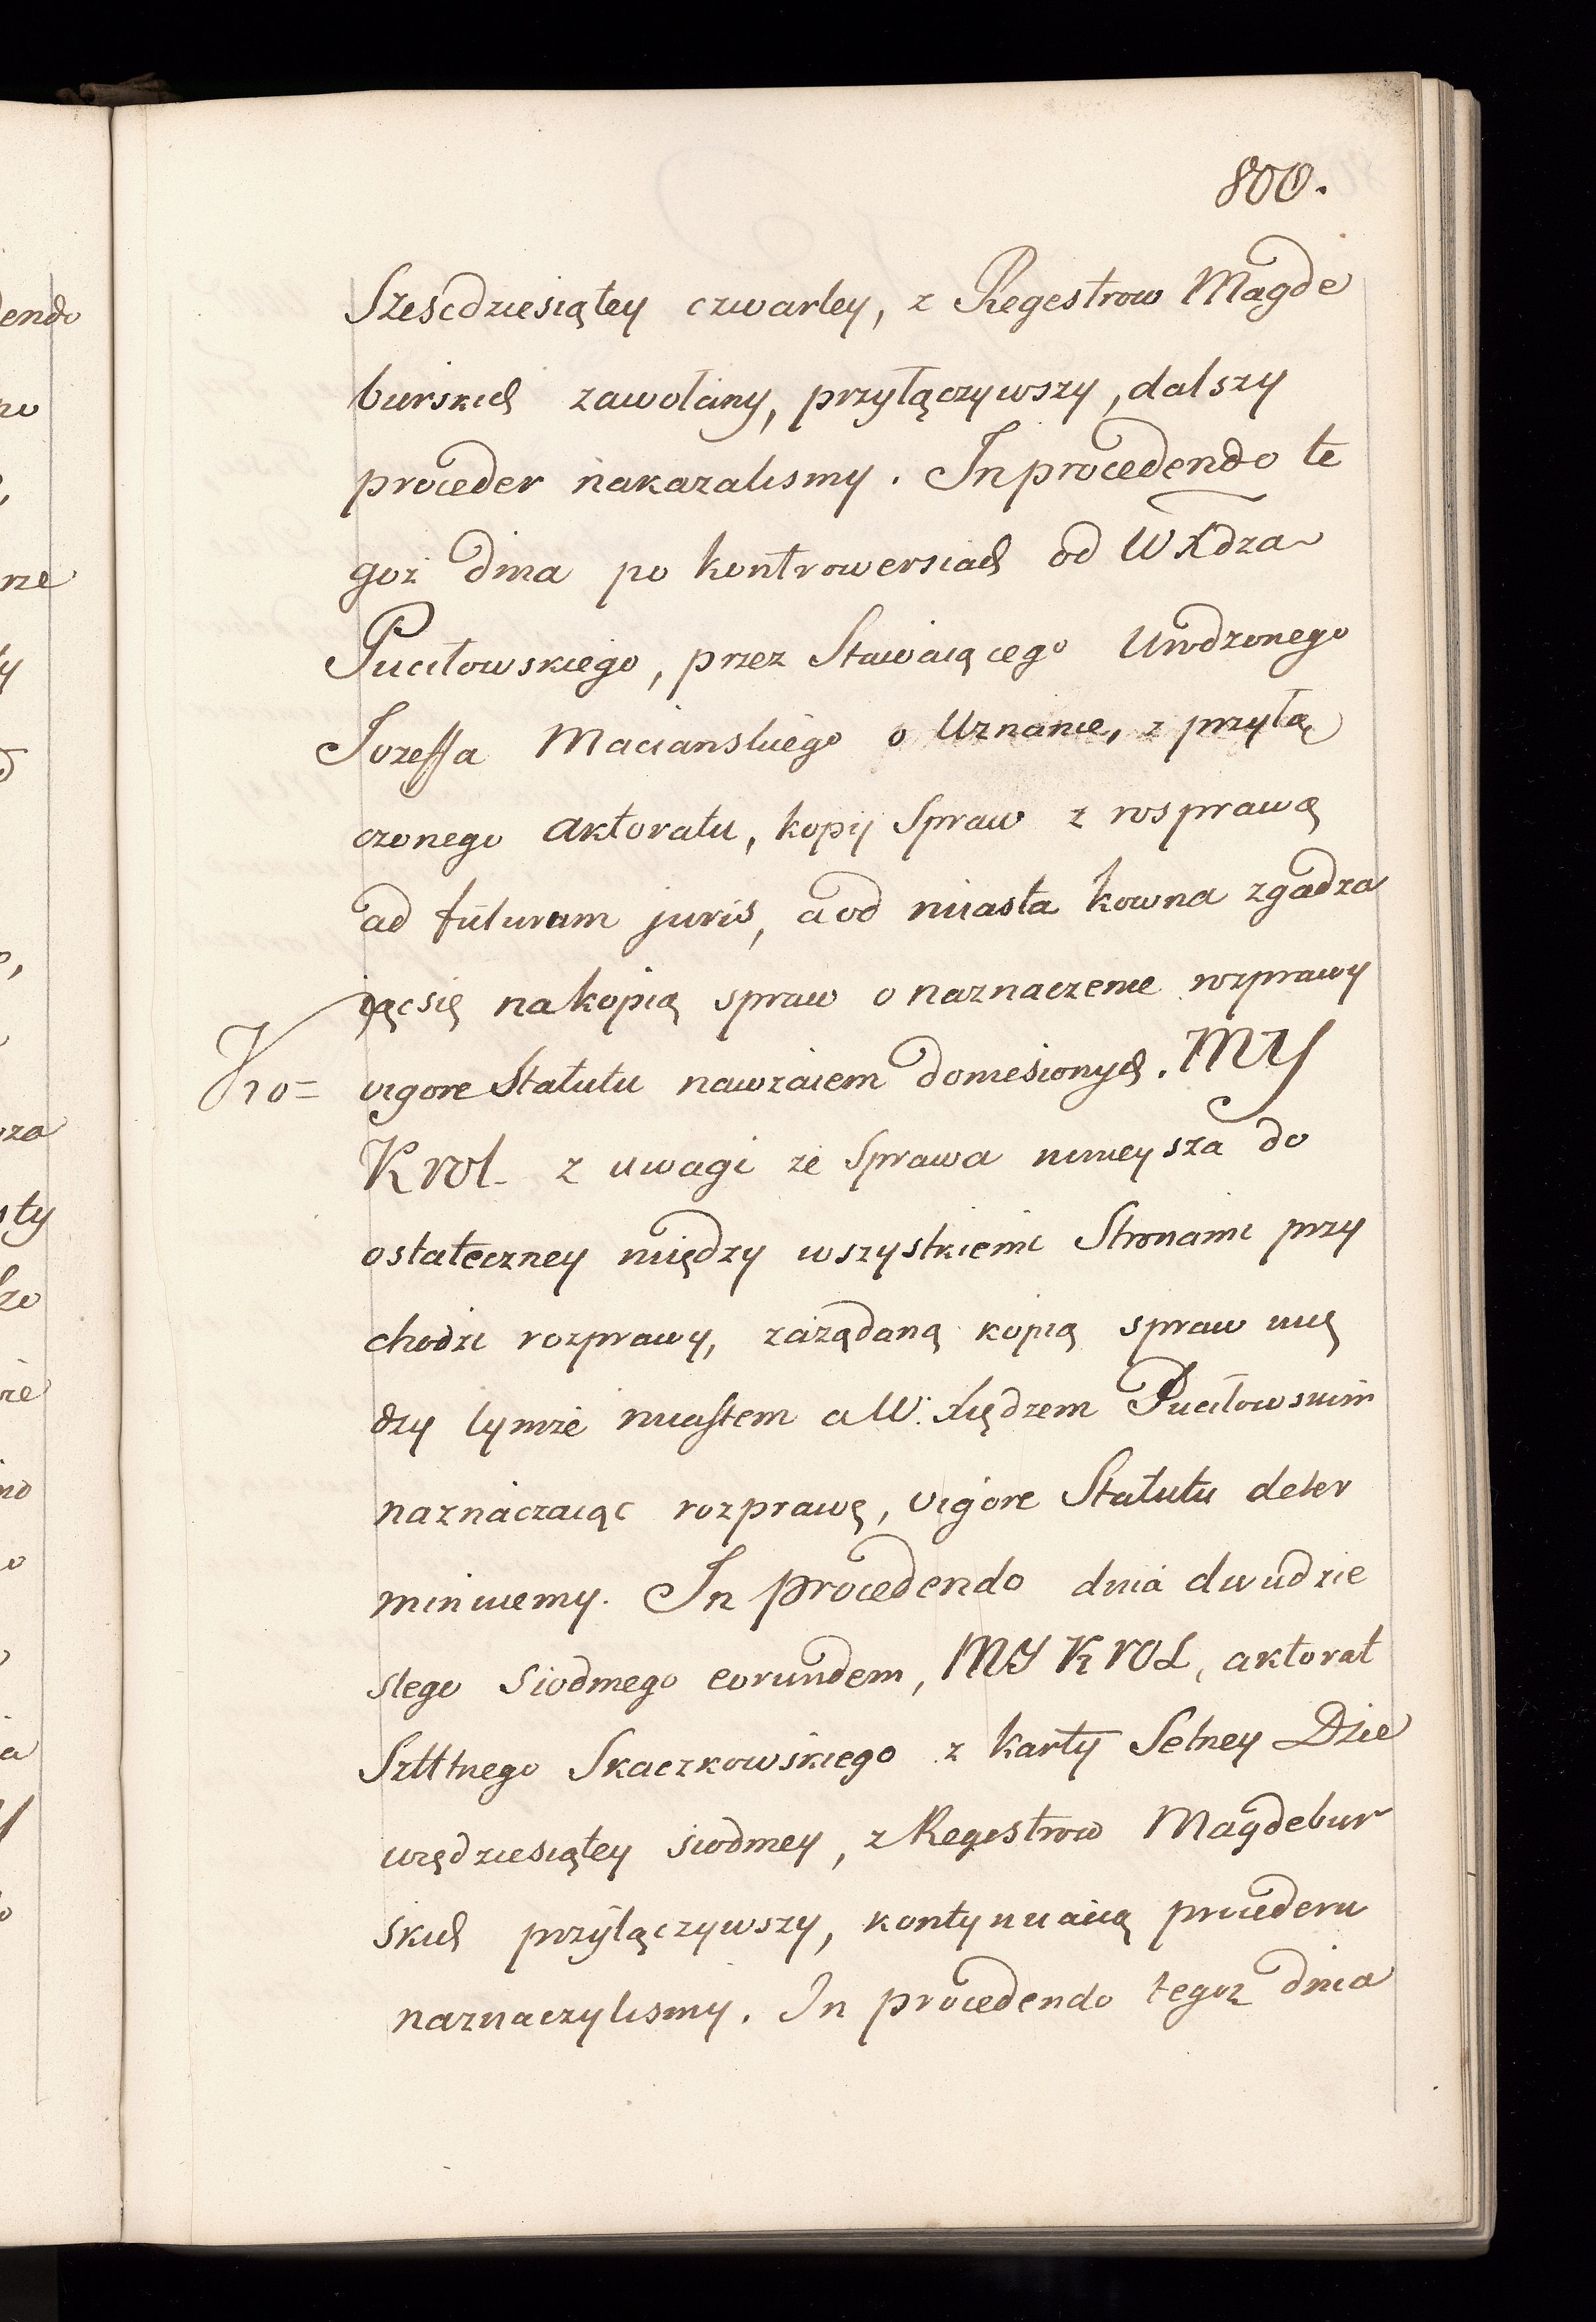 800.
Szescdziesiątey czwartey, z Regestrow Magde
burskich zawołany, przyłączywszy, dalszy
proceder nakazalismy. In procedendo te
goż dnia po kontrowersiach od W Xdza
Puciłowskiego, przez Stawaiącego Urodzonego
Jozeffa Macianskiego o Uznanie, z przyłą
czonego aktoratu, kopij Spraw z rosprawą
ad futuram juris, a od miasta kowna zgadza
iąc się na kopią spraw o naznaczenie rozprawy
vigore Statutu nawzaiem doniesionych. MY
Kro=
Krol z uwagi że Sprawa ninieysza do
ostateczney między wszystkiemi Stronami przy
chodzi rozprawy, zażądaną kopią spraw mię
dzy tymże miastem a W. Xiędzem Puciłowskim
naznaczaiąc rozprawę, vigore Statutu deter
miniuemy. In procedendo dnia dwudzie
stego siodmego eorundem, MY KROL, aktorat
Szlttnego Skaczkowskiego z karty Setney Dzie
więdziesiątey siodmey, z Regestrow Magdebur
skich przyłączywszy, kontynuaicą procederu
naznaczylismy. In procedendo tegoż dnia
endo
rze
sty